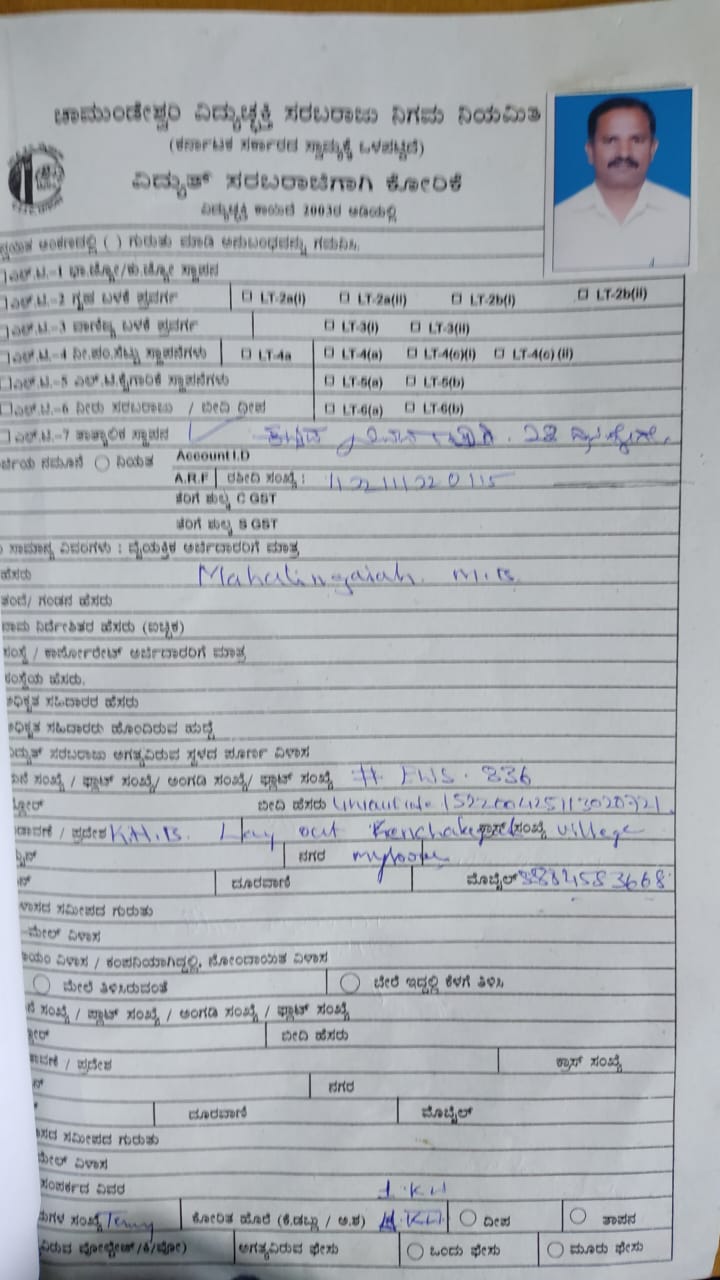 ಚಾಮುಂಡೇಶ್ವರಿ ವಿದ್ಯುಚ್ಛಕ್ತಿ ಸರಬರಾಜು ನಿಗಮ ನಿಯಮಿತ
(ಕರ್ನಾಟಕ ಸರ್ಕಾರದ ಸ್ವಾಮ್ಯಕ್ಕೆ ಒಳಪಟ್ಟಿದೆ)
ವಿದ್ಯುತ್ ಸರಬರಾಜಿಗಾಗಿ ಕೋರಿಕೆ
ವಿದ್ಯುಚ್ಛಕ್ತಿ ಕಾಯಿದೆ 2003ರ ಅಡಿಯಲ್ಲಿ
( ) ಗುರುತು ಮಾಡಿ ಅನುಬಂಧವನ್ನು ಗಮನಿಸಿ.
ಎಲ್.ಟಿ.-1 ಭಾ.ಜ್ಯೋ/ಕು.ಜ್ಯೋ ಸ್ಥಾಪನ
ಎಲ್.ಟಿ.-2 ಗೃಹ ಬಳಕೆ ಪ್ರವರ್ಗ LT-2a(i) LT-2a(ii) LT-2b(i) LT-2b(ii)
ಎಲ್.ಟಿ.-3 ವಾಣಿಜ್ಯ ಬಳಕೆ ಪ್ರವರ್ಗ LT-3(i) LT-3(ii)
ಎಲ್.ಟಿ.-4 ನೀ.ಪಂ.ಸೆಟ್ಟು ಸ್ಥಾಪನೆಗಳು LT-4a LT-4(a) LT-4(c)(i) LT-4(c)(ii)
ಎಲ್.ಟಿ.-5 ಎಲ್.ಟಿ.ಕೈಗಾರಿಕೆ ಸ್ಥಾಪನೆಗಳು LT-5(a) LT-5(b)
ಎಲ್.ಟಿ.-6 ನೀರು ಸರಬರಾಜು / ಬೀದಿ ದೀಪ LT-6(a) LT-6(b)
ಎಲ್.ಟಿ.-7 ತಾತ್ಕಾಲಿಕ ಸ್ಥಾಪನ
ನಮೂನೆ ನಿಯತ Account I.D
A.R.F ರಶೀದಿ ಸಂಖ್ಯೆ :
ತೆರಿಗೆ ಶುಲ್ಕ C GST
ತೆರಿಗೆ ಶುಲ್ಕ S GST
ಸಾಮಾನ್ಯ ವಿವರಗಳು : ವೈಯಕ್ತಿಕ ಅರ್ಜಿದಾರರಿಗೆ ಮಾತ್ರ
ಹೆಸರು Mahalingaiah. M.B.
ತಂದೆ/ ಗಂಡನ ಹೆಸರು
ನಾಮ ನಿರ್ದೇಶಿತರ ಹೆಸರು (ಐಚ್ಛಿಕ)
ಸಂಸ್ಥೆ / ಕಾರ್ಪೋರೇಟ್ ಅರ್ಜಿದಾರರಿಗೆ ಮಾತ್ರ
ಸಂಸ್ಥೆಯ ಹೆಸರು.
ಅಧಿಕೃತ ಸಹಿದಾರರ ಹೆಸರು
ಅಧಿಕೃತ ಸಹಿದಾರರು ಹೊಂದಿರುವ ಹುದ್ದೆ
ವಿದ್ಯುತ್ ಸರಬರಾಜು ಅಗತ್ಯವಿರುವ ಸ್ಥಳದ ಪೂರ್ಣ ವಿಳಾಸ
ಸಂಖ್ಯೆ / ಫ್ಲಾಟ್ ಸಂಖ್ಯೆ/ ಅಂಗಡಿ ಸಂಖ್ಯೆ/ ಪ್ಲಾಟ್ ಸಂಖ್ಯೆ # EWS. 836
ಬೀದಿ ಹೆಸರು
/ ಪ್ರದೇಶ K.H.B. Lay out ಕ್ರಾಸ್ ಸಂಖ್ಯೆ village
ನಗರ mysore
ದೂರವಾಣಿ ಮೊಬೈಲ್
ಸಮೀಪದ ಗುರುತು
ಮೇಲ್ ವಿಳಾಸ
ವಿಳಾಸ / ಕಂಪನಿಯಾಗಿದ್ದಲ್ಲಿ, ನೋಂದಾಯಿತ ವಿಳಾಸ
ಮೇಲೆ ತಿಳಿಸಿರುವಂತೆ ಬೇರೆ ಇದ್ದಲ್ಲಿ ಕೆಳಗೆ ತಿಳಿಸಿ
ಸಂಖ್ಯೆ / ಫ್ಲಾಟ್ ಸಂಖ್ಯೆ / ಅಂಗಡಿ ಸಂಖ್ಯೆ / ಪ್ಲಾಟ್ ಸಂಖ್ಯೆ
ಬೀದಿ ಹೆಸರು
/ ಪ್ರದೇಶ ಕ್ರಾಸ್ ಸಂಖ್ಯೆ
ನಗರ
ದೂರವಾಣಿ ಮೊಬೈಲ್
ಸಮೀಪದ ಗುರುತು
ಮೇಲ್ ವಿಳಾಸ
ಸಂಪರ್ಕದ ವಿವರ 1. KW
ಸಂಖ್ಯೆ ಕೋರಿತ ಹೊರೆ (ಕಿ.ಡಬ್ಲು / ಅ.ಶ) ದೀಪ ತಾಪನ
ಅಗತ್ಯವಿರುವ ಫೇಸು ಒಂದು ಫೇಸು ಮೂರು ಫೇಸು